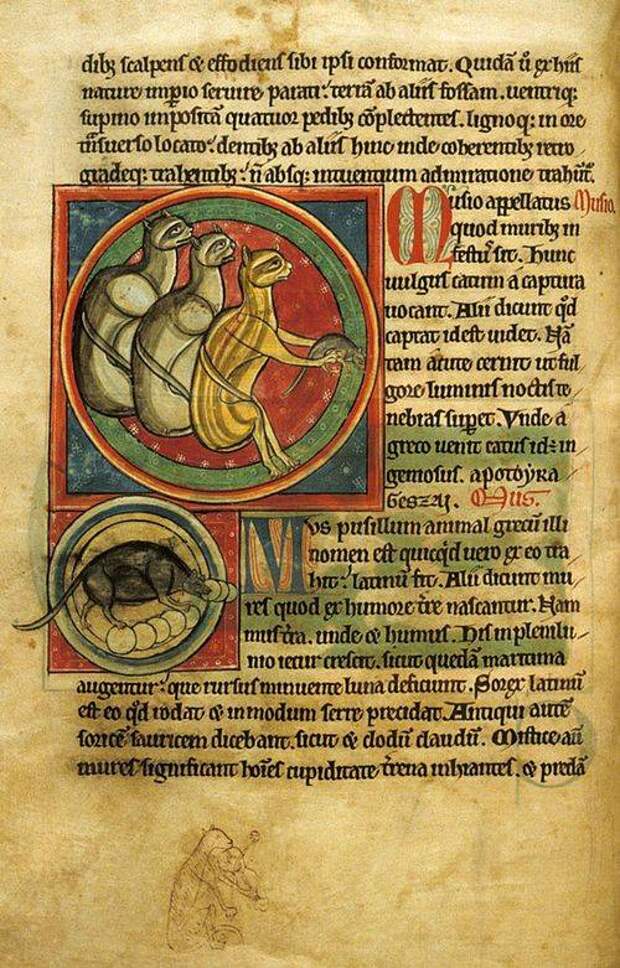 dibꝫ scalpens & effodiens sibi ipsi conformat. Quidā ũ ex hiis
nature impio seruire parati. terrā ab aliis fossam. uentriqꝫ
supino impositā quatuor pedibꝫ cōplectentes. lignoqꝫ in ore
tñsuerso locato. dentibꝫ ab aliis hinc inde coherentibꝫ retro
gradeqꝫ trahentibꝫ. ñ absqꝫ intuentium admiratione trahūt.
Musio appellatus Musio.
quod muribꝫ in
festus sit. Hunc
uulgus catum a captura
uocant. Alii dicunt qd̄
captat id est uidet. Nā
tam acute cernit ut ful
gore luminis noctis te
nebras supet. Vnde a
greco uenit catus id: in
gemosus. apotoyra
geszaj. Mus.
Mvs pusillum animal grecū illi
nomen est quicqd uero ex eo tra
hit. latinū fit. Alii dicunt mu
res quod ex humore tr̄e nascantur. Nam
mus tr̄a. unde & humus. His in plenilu
nio iecur crescit. sicut quedā maritima
augentur. que rursus minuente luna deficiunt. Sorex latinū
est eo qd̄ rodat & in modum serre precidat. Antiqui autē
soricē sauricem dicebant. sicut & clodū claudū. Mistice aū
mures significant hoīes cupiditate tr̄ena inhiantes. & predā